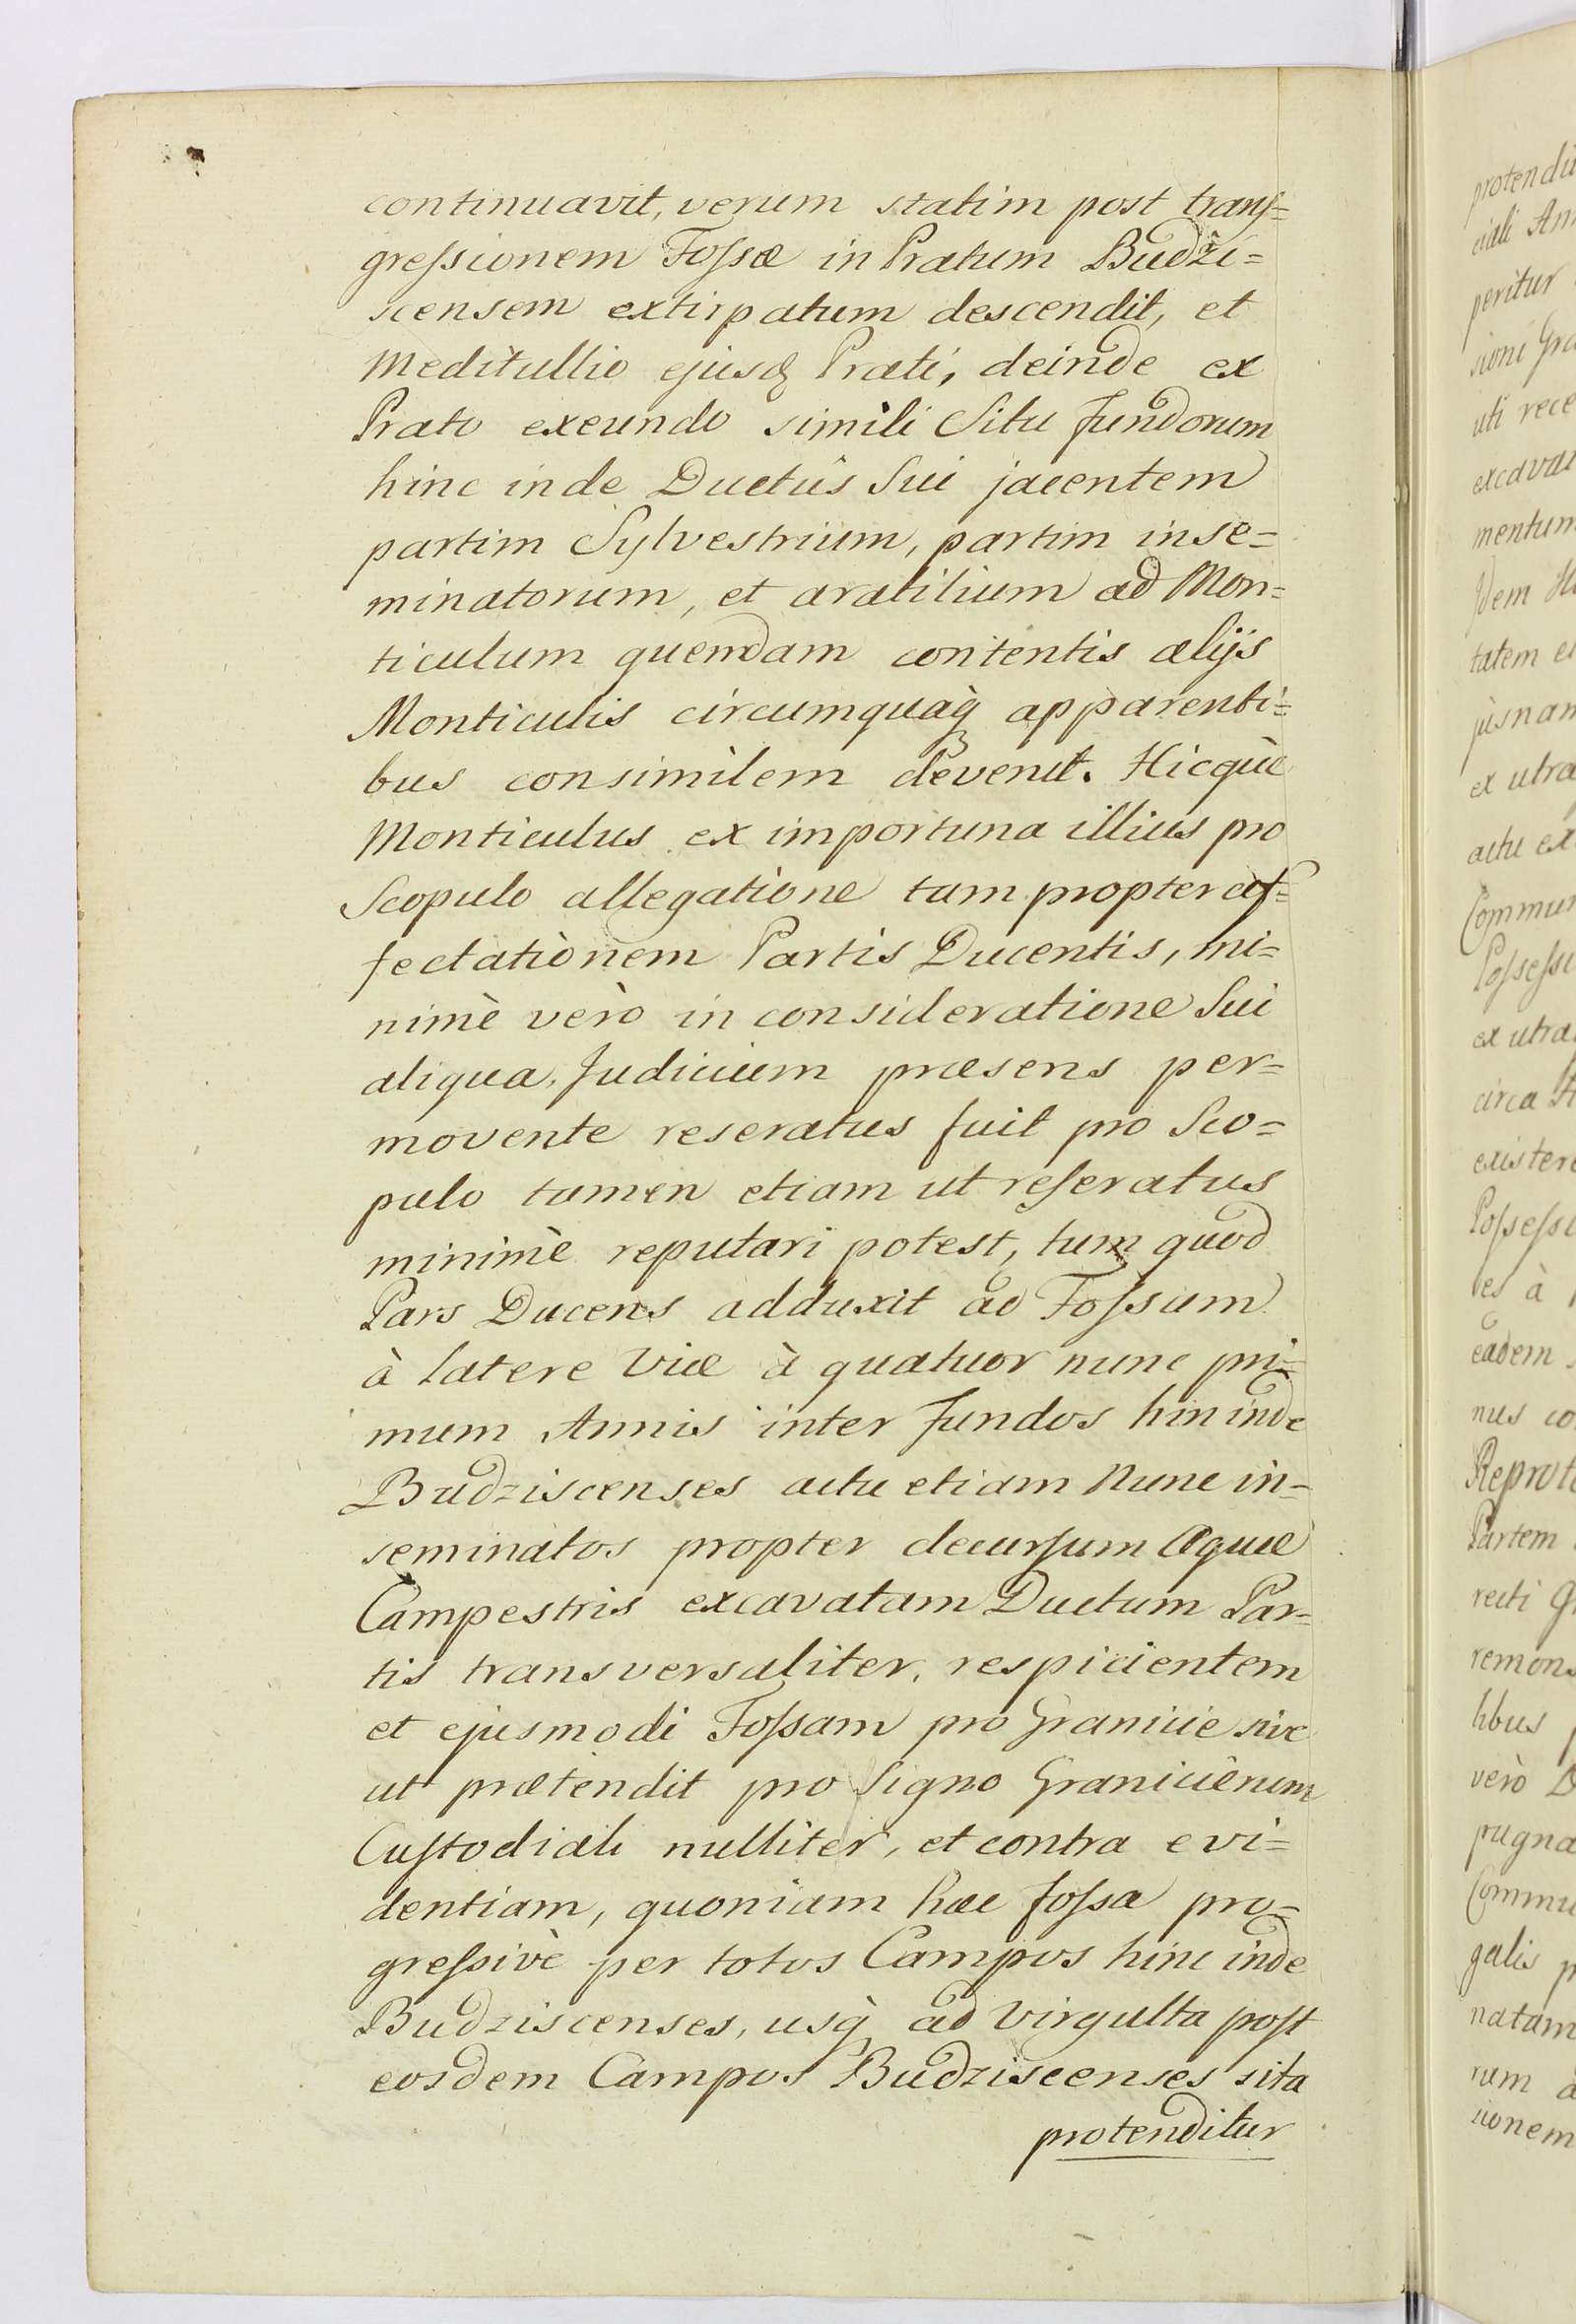 continuavit, verum statim post transſ=
greſsionem Foſsæ in Pratum Budzi=
scensem extirpatum descendit, et
Meditullio ejusq Prati, deinde ex
Prato exeundo simili Situ fundorum
hinc inde Ductûs Sui jacentem
partim Sylvestrium, partim inse=
minatorum, et aratilium ad Mon=
ticulum quemdam contentis alijs
Monticulis circumquaq̀ apparenti=
bus consimilem devenit. Hicquè
Monticulus ex importuna illius pro
Scopulo allegatione tam propter af=
fectationem Partis Ducentis, mi=
nimè verò in consideratione Sui
aliqua, Judicium præsens per=
movente reseratus fuit pro Sco=
pulo tamen etiam ut reſeratus
minimè reputari potest, tum quod
Pars Ducens adduxit ad Foſsam
à latere Viæ à quatuor nunc pri=
mum Annis inter fundos hin inde
Budziscenses actu etiam Nunc in=
seminatos propter decurſum Aquæ
Campestris excavatam Ductum Par=
tis transversaliter, respicientem
et ejusmodi Foſsam pro Granicie sive
ut prætendit pro Signo Granicierum
Cuſtodiali nulliter, et contra evi=
dentiam, quoniam hæc foſsa pro=
greſsivè per totos Campos hinc inde
Budziscenses, usq̀ ad Virgulta poſt
eosdem Campos Budziscenses sita
protenditur
protendi
ciali An
peritur
sioni Gra
uti rece
excavat
mentum
Idem
tatem e
jusnam
ex utra
actu ex
Commun
Poſseſsi
ex utra
circa
existere
Poſseſsi
es à
eadem
nus co
Reprote
Partem
recti G
remons
libus
verò D
pugna
Commu
galis p
natam
rum a
cionem